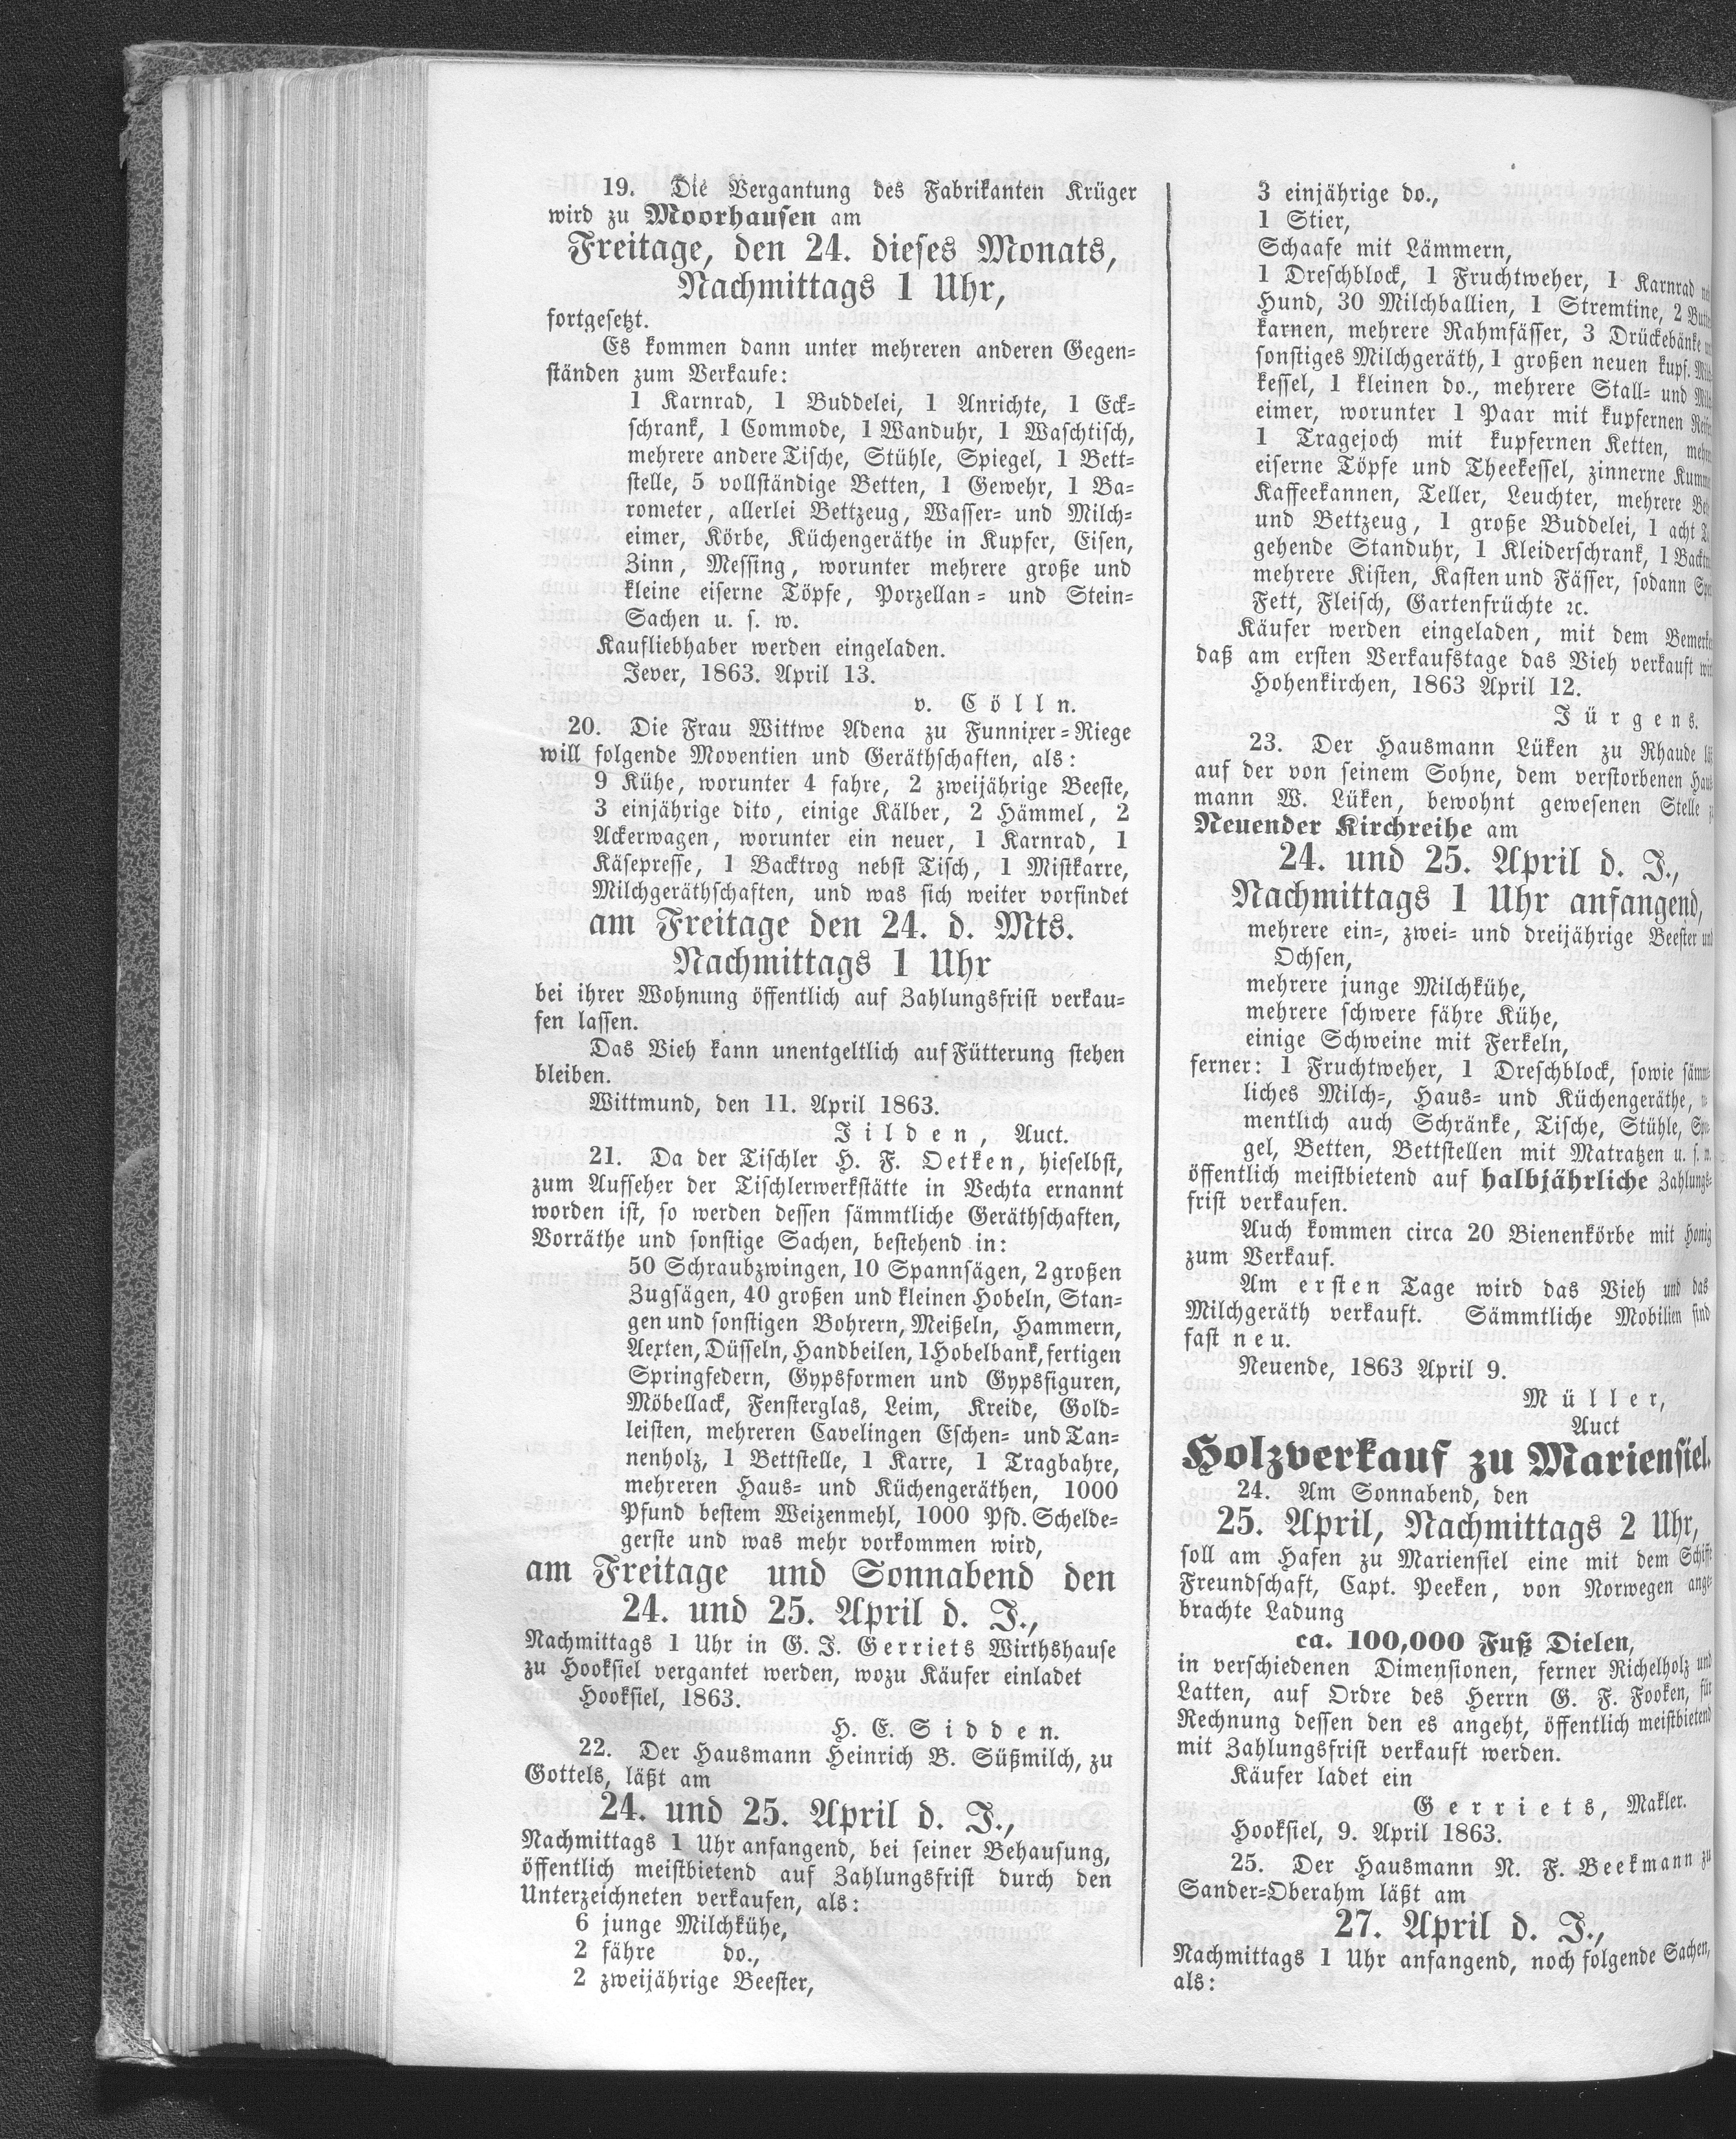 19. Die Vergantung des Fabrikanten Krüger
wird zu Moorhausen am
Freitage, den 24. dieses Monats,
Nachmittags 1 Uhr,
fortgesetzt.
Es kommen dann unter mehreren anderen Gegen=
ständen zum Verkaufe:
1 Karnrad, 1 Buddelei, 1 Anrichte, 1 Eck=
schrank, 1 Commode, 1 Wanduhr, 1 Waschtisch,
mehrere andere Tische, Stühle, Spiegel, 1 Bett=
stelle, 5 vollständige Betten, 1 Gewehr, 1 Ba=
rometer, allerlei Bettzeug, Wasser= und Milch=
eimer, Körbe, Küchengeräthe in Kupfer, Eisen,
Zinn, Messing, worunter mehrere große und
kleine eiserne Töpfe, Porzellan= und Stein=
Sachen u. s. w.
Kaufliebhaber werden eingeladen.
Jever, 1863. April 13.
v. Cölln.
20. Die Frau Wittwe Adena zu Funnixer=Riege
will folgende Moventien und Geräthschaften, als:
9 Kühe, worunter 4 fahre, 2 zweijährige Beeste,
3 einjährige dito, einige Kälber, 2 Hämmel, 2
Ackerwagen, worunter ein neuer, 1 Karnrad, 1
Käsepresse, 1 Backtrog nebst Tisch, 1 Mistkarre,
Milchgeräthschaften, und was sich weiter vorfindet
am Freitage den 24. d. Mts.
Nachmittags 1 Uhr
bei ihrer Wohnung öffentlich auf Zahlungsfrist verkau=
fen lassen.
Das Vieh kann unentgeltlich auf Fütterung stehen
bleiben.
Wittmund, den 11. April 1863.
Jilden, Auct.
21. Da der Tischler H. F. Oetken, hieselbst,
zum Aufseher der Tischlerwerkstätte in Vechta ernannt
worden ist, so werden dessen sämmtliche Geräthschaften,
Vorräthe und sonstige Sachen, bestehend in:
50 Schraubzwingen, 10 Spannsägen, 2 großen
Zugsägen, 40 großen und kleinen Hobeln, Stan=
gen und sonstigen Bohrern, Meißeln, Hammern,
Aexten, Düsseln, Handbeilen, 1 Hobelbank, fertigen
Springfedern, Gypsformen und Gypsfiguren,
Möbellack, Fensterglas, Leim, Kreide, Gold=
leisten, mehreren Cavelingen Eschen= und Tan=
nenholz, 1 Bettstelle, 1 Karre, 1 Tragbahre,
mehreren Haus= und Küchengeräthen, 1000
Pfund bestem Weizenmehl, 1000 Pfd. Schelde=
gerste und was mehr vorkommen wird,
am Freitage und Sonnabend den
24. und 25. April d. J.,
Nachmittags 1 Uhr in G. J. Gerriets Wirthshause
zu Hooksiel vergantet werden, wozu Käufer einladet
Hooksiel, 1863.
H. E. Sidden.
22. Der Hausmann Heinrich B. Süßmilch, zu
Gottels, läßt am
24. und 25. April d. J.,
Nachmittags 1 Uhr anfangend, bei seiner Behausung,
öffentlich meistbietend auf Zahlungsfrist durch den
Unterzeichneten verkaufen, als:
6 junge Milchkühe,
2 fähre do.,
2 zweijährige Beester,
3 einjährige do.,
1 Stier,
Schaafe mit Lämmern,
1 Dreschblock, 1 Fruchtweher, 1 Karnrad
Hund, 30 Milchballien, 1 Stremtine, 2
karnen, mehrere Rahmfässer, 3 Drückebänke
sonstiges Milchgeräth, 1 großen neuen kupf.
kessel, 1 kleinen do., mehrere Stall= und
eimer, worunter 1 Paar mit kupfernen
1 Tragejoch mit kupfernen Ketten,
eiserne Töpfe und Theekessel, zinnerne
Kaffeekannen, Teller, Leuchter, mehrere
und Bettzeug, 1 große Buddelei, 1 acht
gehende Standuhr, 1 Kleiderschrank, 1
mehrere Kisten, Kasten und Fässer, sodann
Fett, Fleisch, Gartenfrüchte ꝛc.
Käufer werden eingeladen, mit dem
daß am ersten Verkaufstage das Vieh verkauft
Hohenkirchen, 1863 April 12.
Jürgens.
23. Der Hausmann Lüken zu Rhaude
auf der von seinem Sohne, dem verstorbenen
mann W. Lüken, bewohnt gewesenen Stelle
Neuender Kirchreihe am
24. und 25. April d. J.,
Nachmittags 1 Uhr anfangend,
mehrere ein=, zwei= und dreijährige Beester und
Ochsen,
mehrere junge Milchkühe,
mehrere schwere fähre Kühe,
einige Schweine mit Ferkeln,
ferner: 1 Fruchtweher, 1 Dreschblock, sowie sämmt=
liches Milch=, Haus= und Küchengeräthe,
mentlich auch Schränke, Tische, Stühle, Spie=
gel, Betten, Bettstellen mit Matratzen u. s. w.
öffentlich meistbietend auf halbjährliche Zahlungs=
frist verkaufen.
Auch kommen circa 20 Bienenkörbe mit Honig
zum Verkauf.
Am ersten Tage wird das Vieh und das
Milchgeräth verkauft. Sämmtliche Mobilien sind
fast neu.
Neuende, 1863 April 9.
Müller,
Auct
Holzverkauf zu Mariensiel.
24. Am Sonnabend, den
25. April, Nachmittags 2 Uhr,
soll am Hafen zu Mariensiel eine mit dem Schiffe
Freundschaft, Capt. Peeken, von Norwegen ange=
brachte Ladung
ca. 100,000 Fuß Dielen,
in verschiedenen Dimensionen, ferner Richelholz und
Latten, auf Ordre des Herrn G. F. Fooken, für
Rechnung dessen den es angeht, öffentlich meistbietend
mit Zahlungsfrist verkauft werden.
Käufer ladet ein
Gerriets, Makler.
Hooksiel, 9. April 1863.
25. Der Hausmann N. F. Beekmann zu
Sander=Oberahm läßt am
27. April d. J.,
Nachmittags 1 Uhr anfangend, noch folgende Sachen,
als: